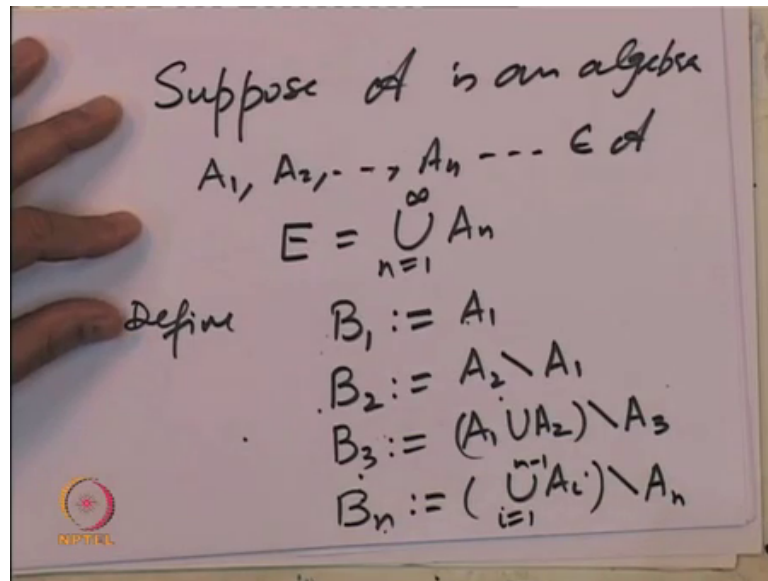 Suppose 𝒜 is an algebra
A₁, A₂, - - , Aₙ - - - ∈ 𝒜
E = ⋃_{n=1}^{∞} Aₙ
Define B₁ := A₁
B₂ := A₂ \ A₁
B₃ := (A₁ ∪ A₂) \ A₃
Bₙ := ( ⋃_{i=1}^{n-1} Aᵢ ) \ Aₙ
NPTEL